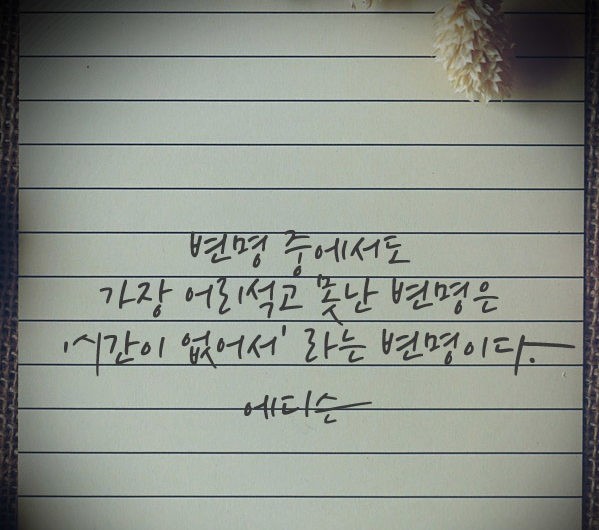 변명 중에서도
가장 어리석고 못난 변명은
'시간이 없어서' 라는 변명이다.
에디슨